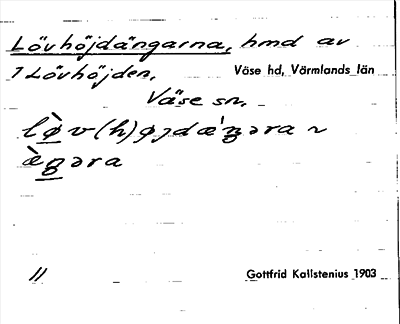 Lövhöjdängarna, hmd av
1 Lövhöjden. Väse hd, Värmlands län
Väse sn.
lø̀v(h)øjdæ̀ŋəra ~
æ̀ŋəra
11
Gottfrid Kallstenius 1903